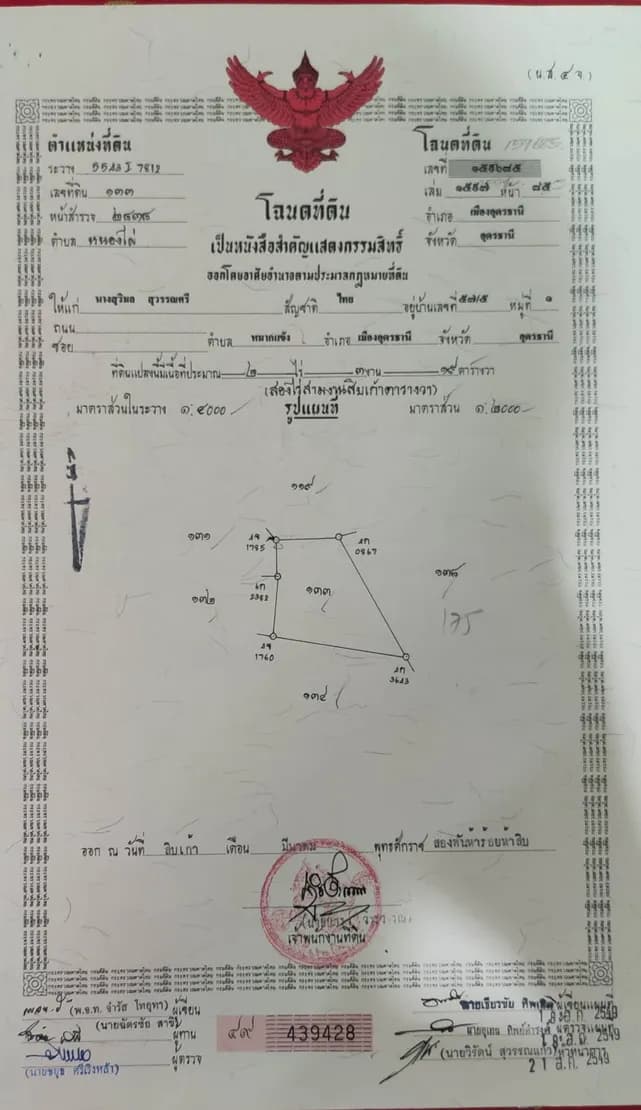 (น.ส.๔ จ.)
ตำแหน่งที่ดิน
ระวาง 5543 I 7812
เลขที่ดิน ๑๓๓
หน้าสำรวจ
ตำบล หนองไผ่
โฉนดที่ดิน
เลขที่ ๑๕๕๖๔๕
เล่ม ๑๕๕๗ หน้า ๔๕
อำเภอ เมืองอุดรธานี
จังหวัด อุดรธานี
โฉนดที่ดิน
เป็นหนังสือสำคัญแสดงกรรมสิทธิ์
ออกโดยอาศัยอำนาจตามประมวลกฎหมายที่ดิน
ให้แก่ นางสุวิมล สุวรรณศรี สัญชาติ ไทย อยู่บ้านเลขที่ ๕๗/๕ หมู่ที่ ๑
ถนน
ซอย ตำบล หมากแข้ง อำเภอ เมืองอุดรธานี จังหวัด อุดรธานี
ที่ดินแปลงนี้มีเนื้อที่ประมาณ ๒ ไร่ ๓ งาน ๑๙ ตารางวา
(สองไร่สามงานสิบเก้าตารางวา)
มาตราส่วนในระวาง ๑:๔๐๐๐ รูปแผนที่ มาตราส่วน ๑:๒๐๐๐
๑๑๙
๑๓๑
1785
0867
๑๓๒
2382
๑๓๓
175
1760
3643
๑๓๔
ออก ณ วันที่ สิบเก้า เดือน มีนาคม พุทธศักราช สองพันห้าร้อยห้าสิบ
เจ้าพนักงานที่ดิน
(พ.อ.ท. จำรัส ไทอุทา) ผู้เขียน
(นายฉัตรชัย สาริ) ผู้ทาน
ผู้ตรวจ
๔๙ 439428
นายเธียรชัย ผู้เขียนแผนที่
18 ส.ค. 2549
ผู้ตรวจแผนที่
18 ส.ค. 2549
(นายวิรัตน์ สุวรรณแก้ว) หัวหน้าการ
21 ส.ค. 2549